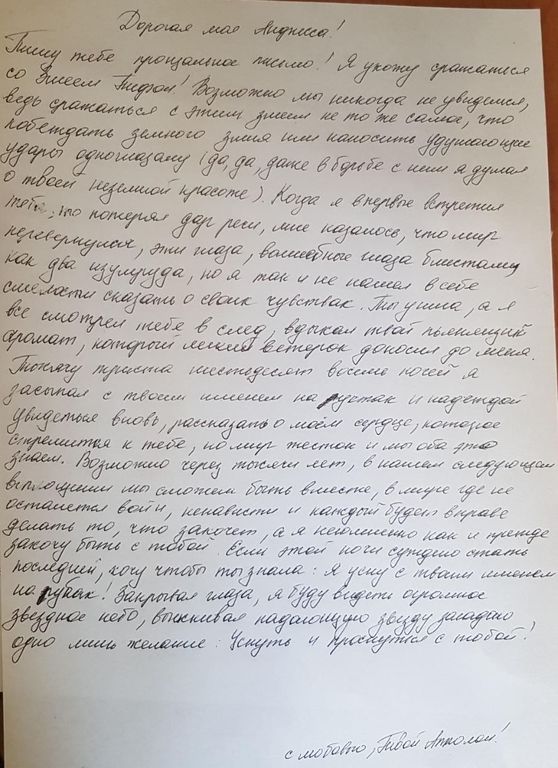 Дорогая моя Анфиса!
Пишу тебе прощальное письмо! Я ухожу сражаться
со Змеем Тифоном! Возможно мы никогда не увидимся,
ведь сражаться с этим змеем не то же самое, что
побеждать земного змея или наносить удушающие
удары одноглазому (да, да, даже в борьбе с ним я думал
о твоей неземной красоте). Когда я впервые встретил
тебя, то потерял дар речи, мне казалось, что мир
перевернулся, эти глаза, волшебные глаза блистали,
как два изумруда, но я так и не нашел в себе
смелости сказать о своих чувствах. Ты ушла, а я
все смотрел тебе в след, вдыхал твой пьянящий
аромат, который легкий ветерок доносил до меня.
Тысячу триста шестьдесят восемь ночей я
засыпал с твоим именем на устах и надеждой
увидеться вновь, рассказать о моём сердце, которое
стремиться к тебе, но мир жесток и мы оба это
знаем. Возможно через тысячи лет, в нашем следующем
воплощении мы сможем быть вместе, в мире где не
останется войн, ненависти и каждый будет вправе
делать то, что захочет, а я неизменно как и прежде
захочу быть с тобой. Если этой ночи суждено стать
последней, хочу чтобы ты знала: Я усну с твоим именем
на губах! Закрывая глаза, я буду видеть огромное
звездное небо, выискивая падающую звезду загадаю
одно лишь желание: Уснуть и проснуться с тобой!
с любовью, Твой Апполон!